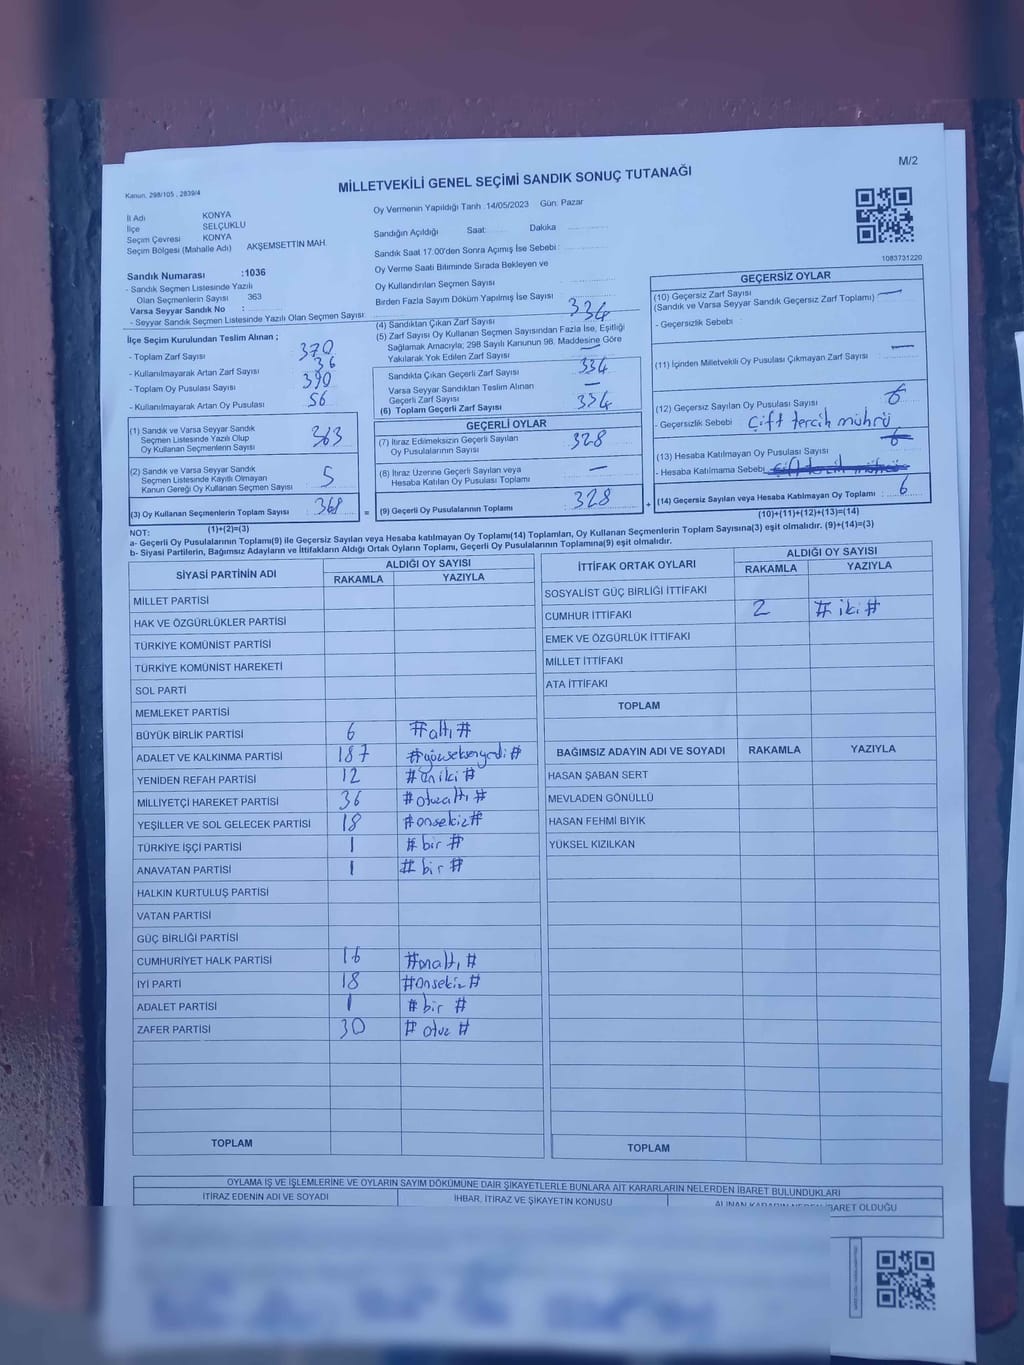 M/2
Kanun, 298/105 , 2839/4
MİLLETVEKİLİ GENEL SEÇİMİ SANDIK SONUÇ TUTANAĞI
İl Adı KONYA
İlçe SELÇUKLU
Seçim Çevresi KONYA
Seçim Bölgesi (Mahalle Adı) AKŞEMSETTIN MAH.
Sandık Numarası :1036
- Sandık Seçmen Listesinde Yazılı
Olan Seçmenlerin Sayısı 363
Varsa Seyyar Sandık No :
- Seyyar Sandık Seçmen Listesinde Yazılı Olan Seçmen Sayısı:
Oy Vermenin Yapıldığı Tarih :14/05/2023 Gün: Pazar
Sandığın Açıldığı Saat: Dakika
Sandık Saat 17.00'den Sonra Açımış İse Sebebi :
Oy Verme Saati Bitiminde Sırada Bekleyen ve
Oy Kullandırılan Seçmen Sayısı
Birden Fazla Sayım Döküm Yapılmış İse Sayısı
1083731220
İlçe Seçim Kurulundan Teslim Alınan ;
- Toplam Zarf Sayısı 370
- Kullanılmayarak Artan Zarf Sayısı 36
- Toplam Oy Pusulası Sayısı 390
- Kullanılmayarak Artan Oy Pusulası 56
(1) Sandık ve Varsa Seyyar Sandık
Seçmen Listesinde Yazılı Olup
Oy Kullanan Seçmenlerin Sayısı 363
(2) Sandık ve Varsa Seyyar Sandık
Seçmen Listesinde Kayıtlı Olmayan
Kanun Gereği Oy Kullanan Seçmen Sayısı 5
(3) Oy Kullanan Seçmenlerin Toplam Sayısı : 368 =
(1)+(2)=(3)
(4) Sandıktan Çıkan Zarf Sayısı 334
(5) Zarf Sayısı Oy Kullanan Seçmen Sayısından Fazla İse, Eşitliği
Sağlamak Amacıyla; 298 Sayılı Kanunun 98. Maddesine Göre
Yakılarak Yok Edilen Zarf Sayısı —
Sandıkta Çıkan Geçerli Zarf Sayısı 334
Varsa Seyyar Sandıktan Teslim Alınan
Geçerli Zarf Sayısı —
(6) Toplam Geçerli Zarf Sayısı 334
GEÇERLİ OYLAR
(7) İtiraz Edilmeksizin Geçerli Sayılan
Oy Pusulalarının Sayısı 328
(8) İtiraz Üzerine Geçerli Sayılan veya
Hesaba Katılan Oy Pusulası Toplamı —
(9) Geçerli Oy Pusulalarının Toplamı : 328 +
GEÇERSİZ OYLAR
(10) Geçersiz Zarf Sayısı —
(Sandık ve Varsa Seyyar Sandık Geçersiz Zarf Toplamı)
- Geçersizlik Sebebi :
(11) İçinden Milletvekili Oy Pusulası Çıkmayan Zarf Sayısı —
(12) Geçersiz Sayılan Oy Pusulası Sayısı 6
- Geçersizlik Sebebi Çift tercih mührü
(13) Hesaba Katılmayan Oy Pusulası Sayısı
- Hesaba Katılmama Sebebi
(14) Geçersiz Sayılan veya Hesaba Katılmayan Oy Toplamı : 6
(10)+(11)+(12)+(13)=(14)
NOT:
a- Geçerli Oy Pusulalarının Toplamı(9) ile Geçersiz Sayılan veya Hesaba katılmayan Oy Toplam(14) Toplamları, Oy Kullanan Seçmenlerin Toplam Sayısına(3) eşit olmalıdır. (9)+(14)=(3)
b- Siyasi Partilerin, Bağımsız Adayların ve İttifakların Aldığı Ortak Oyların Toplamı, Geçerli Oy Pusulalarının Toplamına(9) eşit olmalıdır.
SİYASİ PARTİNİN ADI ALDIĞI OY SAYISI
RAKAMLA YAZIYLA
MİLLET PARTİSİ
HAK VE ÖZGÜRLÜKLER PARTİSİ
TÜRKİYE KOMÜNİST PARTİSİ
TÜRKİYE KOMÜNİST HAREKETİ
SOL PARTİ
MEMLEKET PARTİSİ
BÜYÜK BİRLİK PARTİSİ 6 #altı#
ADALET VE KALKINMA PARTİSİ 187 #yüzseksenyedi#
YENİDEN REFAH PARTİSİ 12 #oniki#
MİLLİYETÇİ HAREKET PARTİSİ 36 #otuzaltı#
YEŞİLLER VE SOL GELECEK PARTİSİ 18 #onsekiz#
TÜRKİYE İŞÇİ PARTİSİ 1 #bir#
ANAVATAN PARTİSİ 1 #bir#
HALKIN KURTULUŞ PARTİSİ
VATAN PARTİSİ
GÜÇ BİRLİĞİ PARTİSİ
CUMHURİYET HALK PARTİSİ 16 #onaltı#
İYİ PARTİ 18 #onsekiz#
ADALET PARTİSİ 1 #bir#
ZAFER PARTİSİ 30 #otuz#
TOPLAM
İTTİFAK ORTAK OYLARI ALDIĞI OY SAYISI
RAKAMLA YAZIYLA
SOSYALIST GÜÇ BİRLİĞİ İTTİFAKI
CUMHUR İTTİFAKI 2 #iki#
EMEK VE ÖZGÜRLÜK İTTİFAKI
MİLLET İTTİFAKI
ATA İTTİFAKI
TOPLAM
BAĞIMSIZ ADAYIN ADI VE SOYADI RAKAMLA YAZIYLA
HASAN ŞABAN SERT
MEVLADEN GÖNÜLLÜ
HASAN FEHMI BIYIK
YÜKSEL KIZILKAN
TOPLAM
OYLAMA İŞ VE İŞLEMLERİNE VE OYLARIN SAYIM DÖKÜMÜNE DAİR ŞİKAYETLERLE BUNLARA AİT KARARLARIN NELERDEN İBARET BULUNDUKLARI
İTİRAZ EDENİN ADI VE SOYADI İHBAR, İTİRAZ VE ŞİKAYETİN KONUSU ALINAN KARARIN NEDEN İBARET OLDUĞU